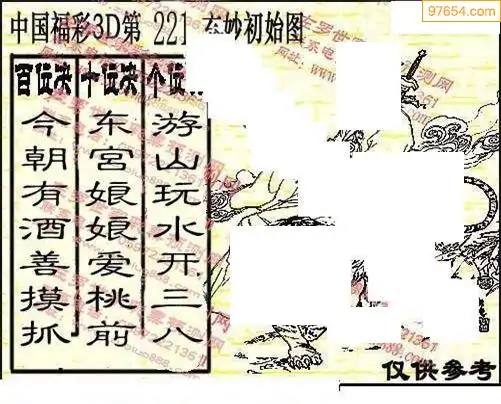 97654.com
中国福彩3D第 221 玄妙初始图
百位决
今朝有酒善摸抓
十位决
东宫娘娘爱桃前
个位
游山玩水开三八
仅供参考